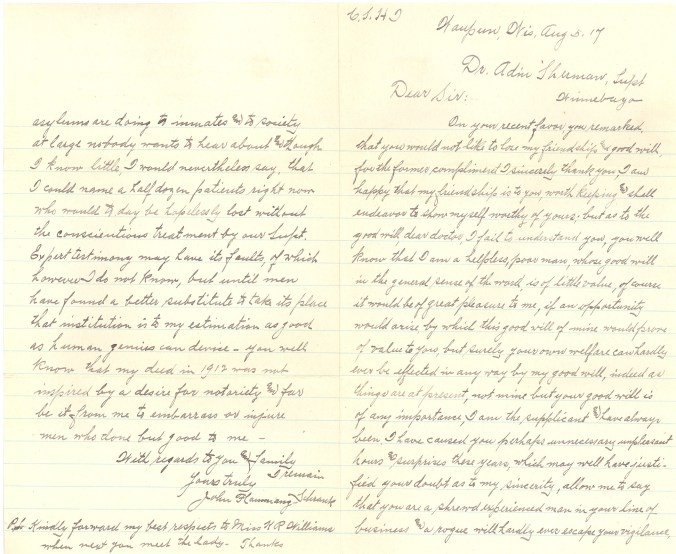 C.S.H.I
Waupun, Wis, Aug 3. 17
Dr. Adin Sherman, Supt
Winnebago
Dear Sir:
On your recent favor, you remarked,
that you would not like to lose my friendship & good will,
for the former compliment I sincerely thank you, I am
happy that my friendship is to you, worth keeping & shall
endeavor to show myself worthy of yours, but as to the
good will, dear doctor, I fail to understand you, you well
know that I am a helpless poor man, whose good will
in the general sense of the word, is of little value, of course
it would be of great pleasure to me, if an opportunity
would arise by which this good will of mine would prove
of value to you, but surely your own welfare can hardly
ever be effected in any way by my good will, indeed as
things are at present, not mine but your good will is
of any importance, I am the supplicant & have always
been, I have caused you perhaps unnecessary unpleasant
hours & surprises these years, which may well have justi-
fied your doubt as to my sincerity, allow me to say
that you are a shrewd experienced man in your line of
business & a rogue will hardly ever escape your vigilance,
asylums are doing to inmates & to society
at large nobody wants to hear about & though
I know little, I would nevertheless say, that
I could name a half dozen patients right now
who would to day be hopelessly lost without
the conscientious treatment by our Supt.
Expert testimony may have its faults, of which
however I do not know, but until men
have found a better substitute to take its place
that institution is to my estimation as good
as human genius can devise – you well
know that my deed in 1912 was not
inspired by a desire for notoriety & far
be it from me to embarrass or injure
men who done but good to me –
With regards to you & family
I remain
Yours truly
John Flammang Schrank
P.S. Kindly forward my best respects to Miss N.R. Williams
when next you meet the lady – Thanks